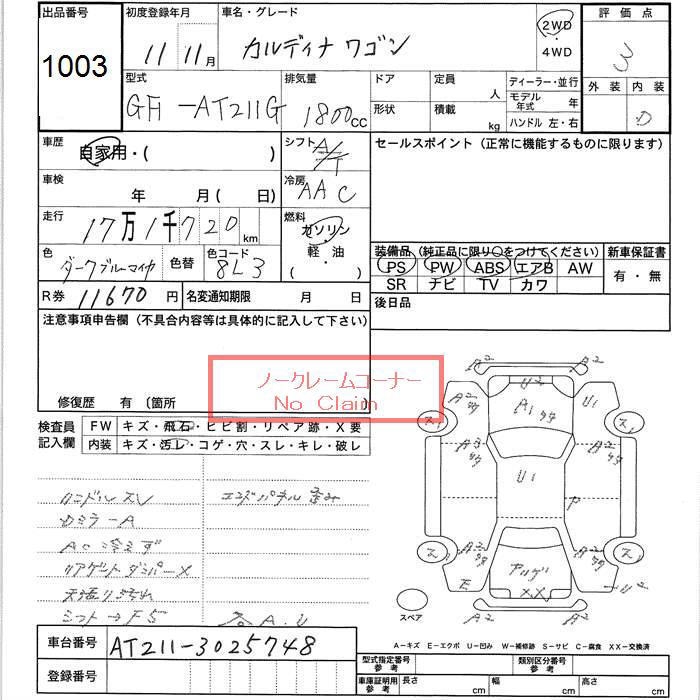 出品番号 初度登録年月 車名・グレード 評価点
1003 11年 11月 カルディナ ワゴン 2WD ・ 4WD 3
外装 内装
型式 排気量 ドア 定員 人 ディーラー・並行
GH-AT211G 1800cc 形状 積載 kg モデル年式 年 D
ハンドル 左・右
車歴 自家用・( ) シフト A/T セールスポイント (正常に機能するものに限ります)
車検 年 月( 日) 冷房 AAC
走行 17万1千720km 燃料 ガソリン・軽油 ( )
装備品 (純正品に限り○をつけてください) 新車保証書
色 ダークブルーマイカ 色替 色コード 8L3 PS PW ABS エアB AW 有・無
SR ナビ TV カワ
R券 11670円 名変通知期限 月 日 後日品
注意事項申告欄 (不具合内容等は具体的に記入して下さい)
ノークレームコーナー
No Claim
修復歴 有 〔箇所
検査員記入欄 FW キズ・飛石・ヒビ割・リペア跡・X要
内装 キズ・汚レ・コゲ・穴・スレ・キレ・破レ
ハンドルスレ エンドパネル歪み
Dミラー A
AC冷えず
リアゲートダンパーX
天張り汚れ
シフト→F5 A.U
A2 A2
U2
A1
U1
U1
P
E
XX
A2 A2
スペア
A-キズ E-エクボ U-凹み W-補修跡 S-サビ C-腐食 XX-交換済
車台番号 AT211-3025748
型式指定番号 参考 類別区分番号 参考
登録番号 車庫証明用 参考 長さ cm 幅 cm 高さ cm